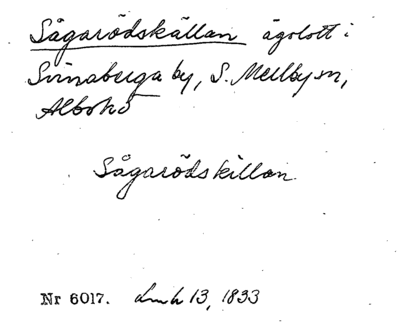 Sågarödskällan ägolott i
Svinaberga by, S. Mellby sn,
Albo hd
Sågarödskillan.
Nr 6017. Lmh 13, 1833